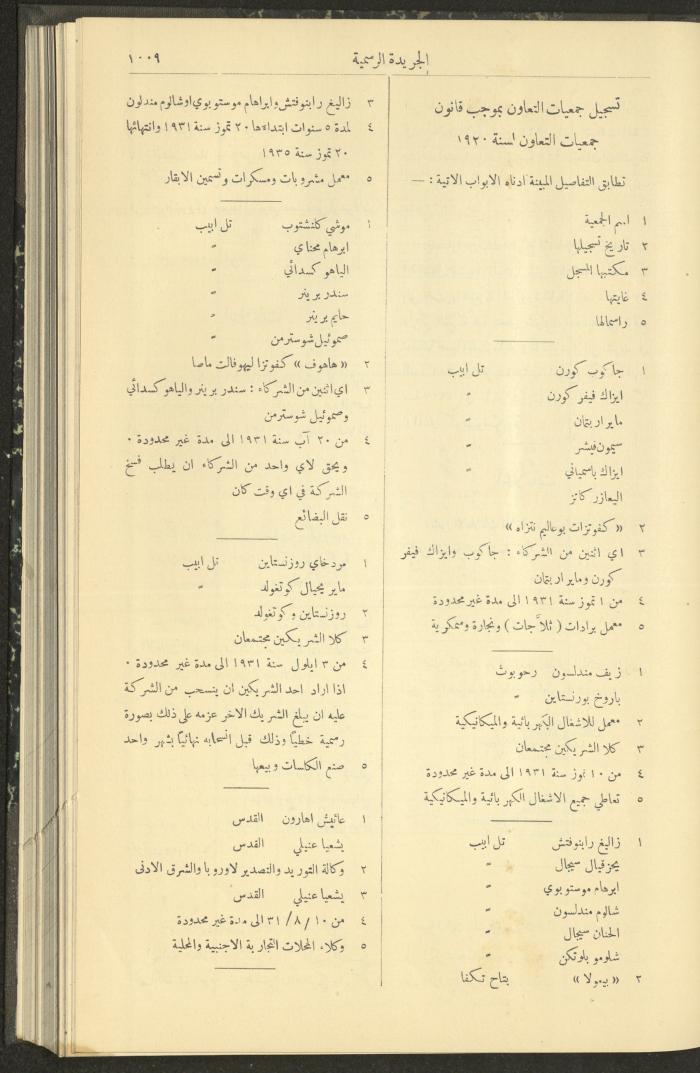 الجريدة الرسمية
١٠٠٩
تسجيل جمعيات التعاون بموجب قانون
جمعيات التعاون لسنة ١٩٢٠
تطابق التفاصيل المبينة ادناه الابواب الاتية : —
١ اسم الجمعية
٢ تاريخ تسجيلها
٣ مكتبها المسجل
٤ غايتها
٥ راسمالها
١ جاكوب كورن تل ابيب
ايزاك فيفر كورن "
ماير اربتمان "
سيمون فيشر "
ايزاك باسمياني "
اليعازر كاتز
٢ « كفوتزات بوعاليم نتزاه »
٣ اي اثنين من الشركاء : جاكوب وايزاك فيفر
كورن وماير اربتمان
٤ من ١ تموز سنة ١٩٣١ الى مدة غير محدودة
٥ معمل برادات ( ثلاَّجات ) ونجارة وسمكرية
١ زيف مندلسون رحوبوث
باروخ بورنستاين "
٢ معمل للاشغال الكهربائية والميكانيكية
٣ كلا الشريكين مجتمعان
٤ من ١٠ تموز سنة ١٩٣١ الى مدة غير محدودة
٥ تعاطي جميع الاشغال الكهربائية والميكانيكية
١ زاليغ رابنوفتش تل ابيب
يحزقيال سيجال "
ابرهام موستوبوي "
شالوم مندلسون "
الحنان سيجال "
شلومو بلوتكن "
٢ « بيمولا » بتاح تكفا
٣ زاليغ رابنوفتش وابراهام موستوبوي او شالوم مندلون
٤ لمدة ٥ سنوات ابتداءها ٢٠ تموز سنة ١٩٣١ وانتهائها
٢٠ تموز سنة ١٩٣٥
٥ معمل مشروبات ومسكرات وتسمين الابقار
١ موشي كلنشتوب تل ابيب
ابرهام محناي "
الياهو كسدائي "
سندر برينر "
حايم برينر "
صموئيل شوسترمن "
٢ « هاهوف » كفوتزا ليهوفالت ماصا
٣ اي اثنين من الشركاء : سندر برينر والياهو كسدائي
وصموئيل شوسترمن
٤ من ٢٠ آب سنة ١٩٣١ الى مدة غير محدودة ٠
ويحق لاي واحد من الشركاء ان يطلب فسخ
الشركة في اي وقت كان
٥ نقل البضائع
١ مردخاي روزنستاين تل ابيب
ماير يحيال كوتغولد "
٢ روزنستاين وكوتغولد
٣ كلا الشريكين مجتمعان
٤ من ٣ ايلول سنة ١٩٣١ الى مدة غير محدودة ٠
اذا اراد احد الشريكين ان ينسحب من الشركة
عليه ان يبلغ الشريك الاخر عزمه على ذلك بصورة
رسمية خطيًا وذلك قبل انسحابه نهائيًا بشهر واحد
٥ صنع الكلسات وبيعها
١ عائيش اهارون القدس
يشعيا عنيلي القدس
٢ وكالة التوريد والتصدير لاوروبا والشرق الادنى
٣ يشعيا عنيلي القدس
٤ من ١٠/ ٨/ ٣١ الى مدة غير محدودة
٥ وكلاء المحلات التجارية الاجنبية والمحلية